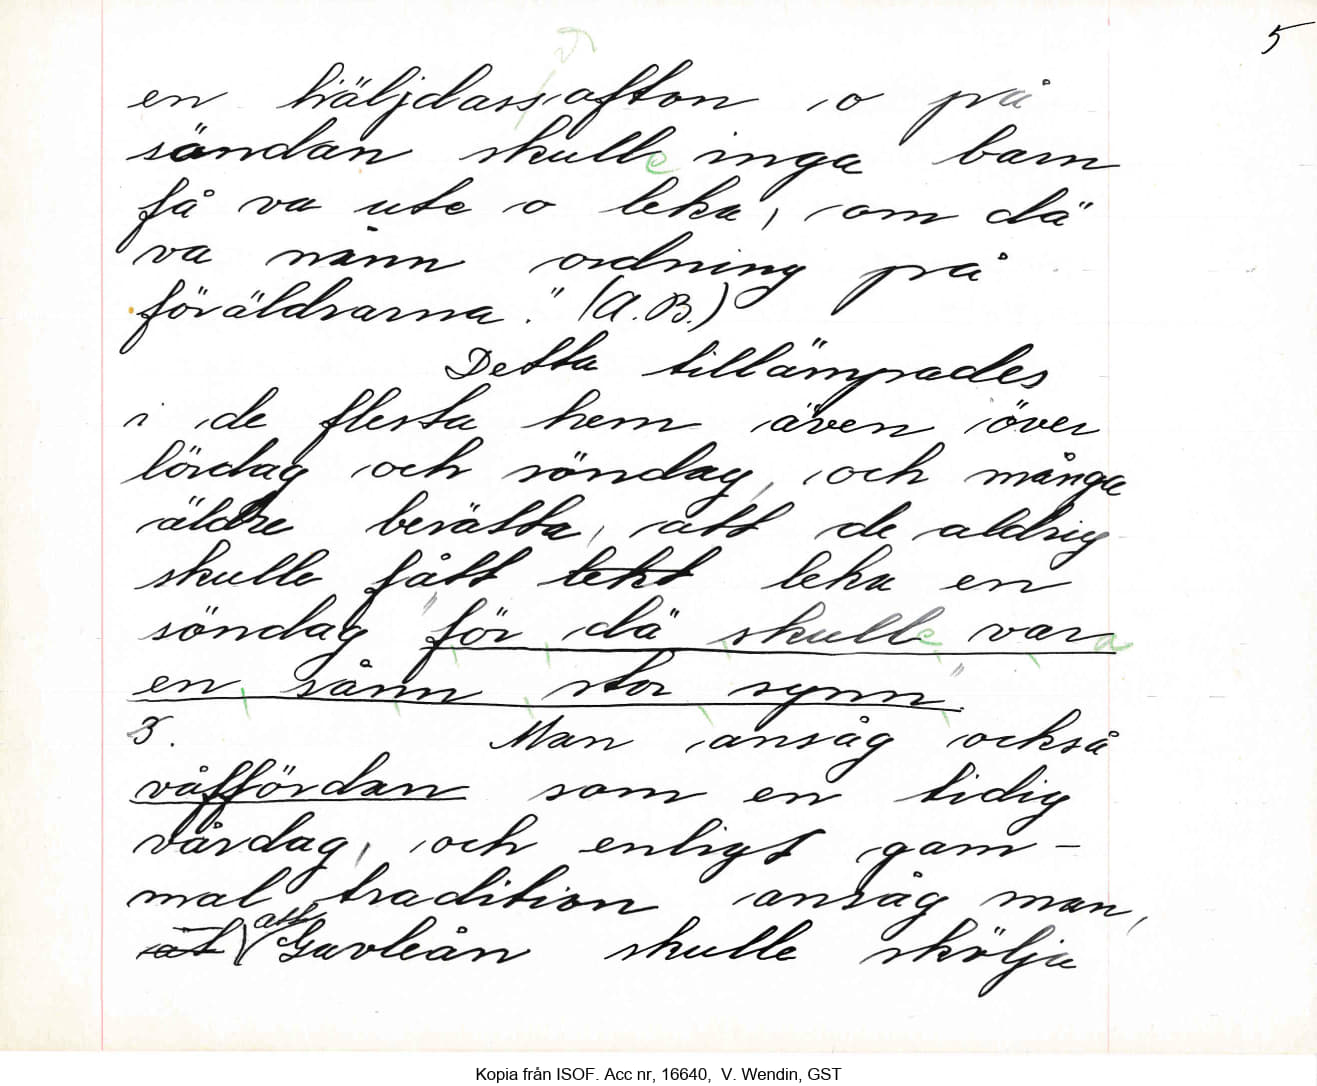 5
en häljdassafton o på
söndan skulle inga barn
få va ute o leka, om dä
va nånn ordning på
föräldrarna." (A.B.)
Detta tillämpades
i de flesta hem även över
lördag och söndag, och många
äldre berätta, att de aldrig
skulle fått lekt leka en
söndag "för dä skulle vara
en sånn stor synn".
3. Man ansåg också
våffördan som en tidig
vårdag, och enligt gam-
mal tradition ansåg man,
at att Gavleån skulle skölja
Kopia från ISOF. Acc nr, 16640, V. Wendin, GST